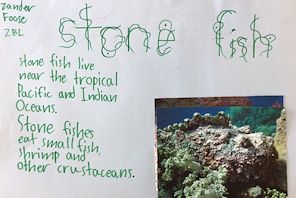 zander
Foose
ZBL
stone fish
stone fish live
near the tropical
Pacific and Indian
Oceans.
Stone fishes
eat small fish,
shrimp and
other crustaceans.